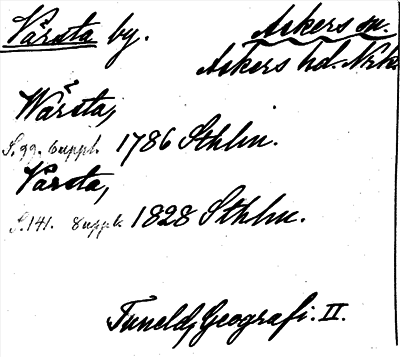 Vårsta by. Askers sn.
Askers hd. Nrke.
Wårsta,
S. 99. Suppl. 1786 Sthlm.
Vårsta,
S. 141. Suppl. 1828 Sthlm.
Tuneld, Geografi. II.